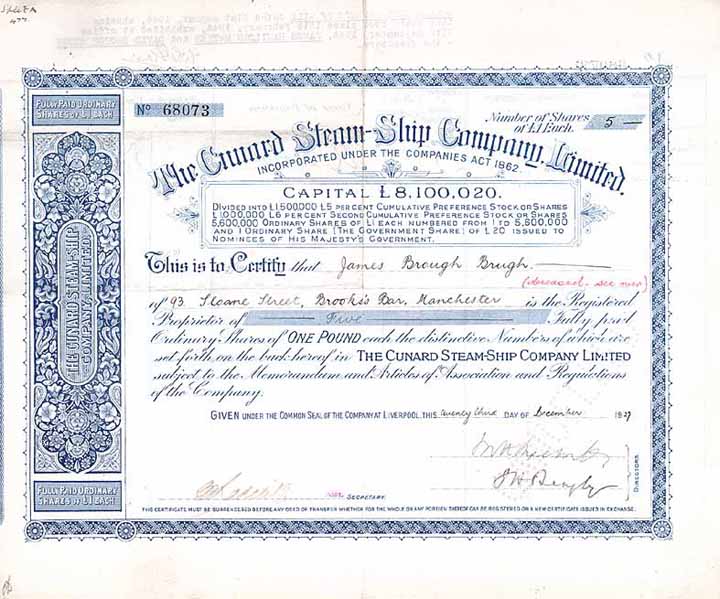 FULLY PAID ORDINARY
SHARES OF £1 EACH
No 68073
Number of Shares
of £1 Each. 5
The Cunard Steam-Ship Company, Limited.
INCORPORATED UNDER THE COMPANIES ACT 1862.
CAPITAL £8,100,020.
DIVIDED INTO £1,500,000 £5 PER CENT CUMULATIVE PREFERENCE STOCK OR SHARES
£1,000,000 £6 PER CENT SECOND CUMULATIVE PREFERENCE STOCK OR SHARES
5,600,000 ORDINARY SHARES OF £1 EACH NUMBERED FROM 1 TO 5,600,000
AND 1 ORDINARY SHARE (THE GOVERNMENT SHARE) OF £20 ISSUED TO
NOMINEES OF HIS MAJESTY'S GOVERNMENT.
This is to Certify that James Brough Brugh.
(deceased. see over)
of 93, Sloane Street, Brook's Bar, Manchester is the Registered
Proprietor of Five Fully paid
Ordinary Shares of ONE POUND each the distinctive Numbers of which are
set forth on the back hereof in THE CUNARD STEAM-SHIP COMPANY LIMITED
subject to the Memorandum and Articles of Association and Regulations
of the Company.
GIVEN UNDER THE COMMON SEAL OF THE COMPANY AT LIVERPOOL, THIS twenty third DAY OF December 1927
DIRECTORS.
ASST. SECRETARY.
THE CUNARD STEAM-SHIP
COMPANY LIMITED
FULLY PAID ORDINARY
SHARES OF £1 EACH
THIS CERTIFICATE MUST BE SURRENDERED BEFORE ANY DEED OF TRANSFER WHETHER FOR THE WHOLE OR ANY PORTION THEREOF CAN BE REGISTERED OR A NEW CERTIFICATE ISSUED IN EXCHANGE.